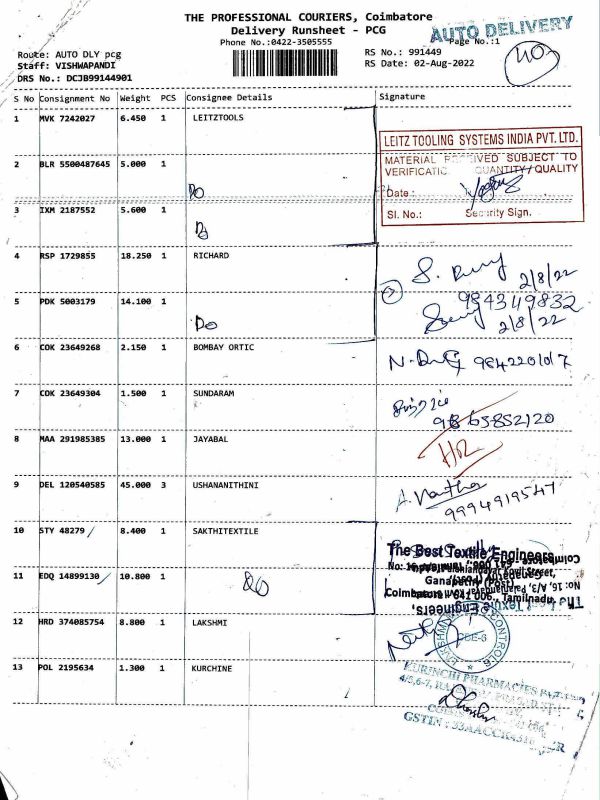 THE PROFESSIONAL COURIERS, Coimbatore
AUTO DELIVERY
Delivery Runsheet - PCG
Phone No.:0422-3505555
Page No.:1
Route: AUTO DLY pcg
RS No.: 991449
Staff: VISHWAPANDI
RS Date: 02-Aug-2022
DRS No.: DCJB99144901
S No Consignment No Weight PCS Consignee Details Signature
1 MVK 7242027 6.450 1 LEITZTOOLS
LEITZ TOOLING SYSTEMS INDIA PVT. LTD.
MATERIAL RECEIVED SUBJECT TO
VERIFICATION QUANTITY / QUALITY
2 BLR 5500487645 5.000 1
Do
Date :
3 IXM 2187552 5.600 1
Sl. No.: Security Sign.
Do
4 RSP 1729855 18.250 1 RICHARD
2/8/22
9843149832
5 PDK 5003179 14.100 1
Do
2/8/22
6 COK 23649268 2.150 1 BOMBAY ORTIC
9842201017
7 COK 23649304 1.500 1 SUNDARAM
9865852120
8 MAA 291985385 13.000 1 JAYABAL
9 DEL 120540585 45.000 3 USHANANITHINI
A. Nantha
9994919547
10 STY 48279 8.400 1 SAKTHITEXTILE
The Best Textile Engineers
11 EDQ 14899130 10.800 1
Do
Ganapathy (Post)
12 HRD 374085754 8.800 1 LAKSHMI
13 POL 2195634 1.300 1 KURCHINE
KURINCHI PHARMACIES